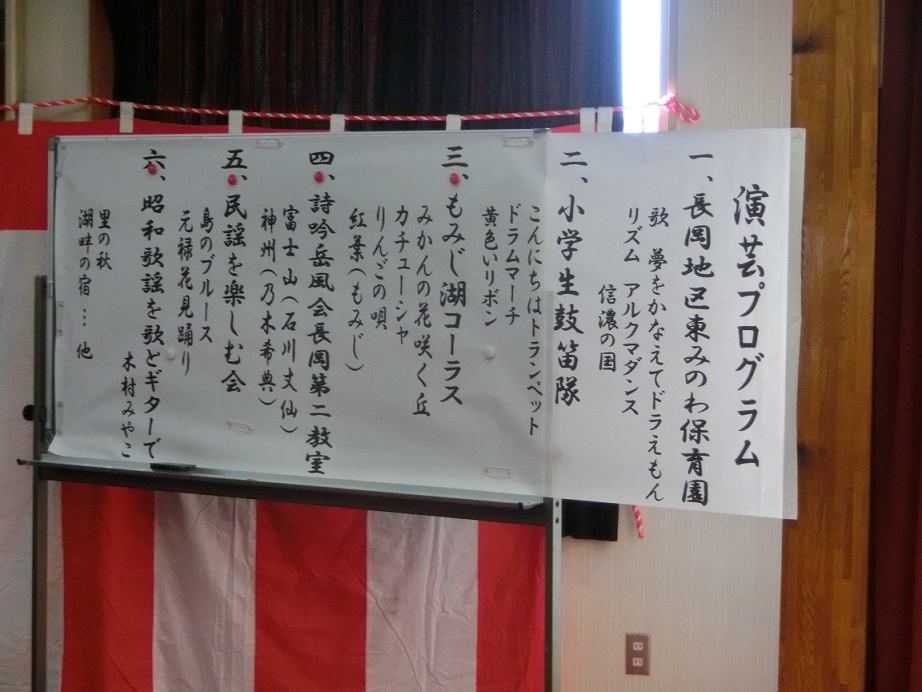 演芸プログラム
一、長岡地区東みのわ保育園
歌　夢をかなえてドラえもん
リズム　アルクマダンス
信濃の国
二、小学生鼓笛隊
こんにちはトランペット
ドラムマーチ
黄色いリボン
三、もみじ湖コーラス
みかんの花咲く丘
カチューシャ
りんごの唄
紅葉(もみじ)
四、詩吟岳風会長岡第二教室
富士山(石川丈仙)
神州(乃木希典)
五、民謡を楽しむ会
島のブルース
元禄花見踊り
六、昭和歌謡を歌とギターで
木村みやこ
里の秋
湖畔の宿…他